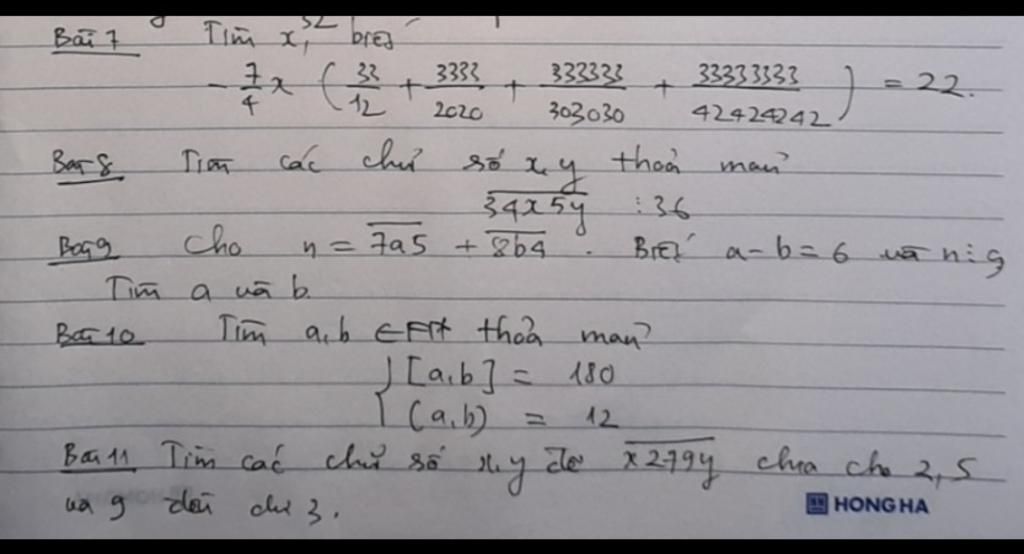 Bài 7 Tìm x, biết
- 7/4 x ( 33/12 + 3333/2020 + 333333/303030 + 33333333/42424242 ) = 22.
Bài 8 Tìm các chữ số x, y thoả mãn
34x5y : 36
Bài 9 Cho n = 7a5 + 8b4 . Biết a - b = 6 và n ⋮ 9
Tìm a và b.
Bài 10 Tìm a, b ∈ N* thoả mãn
[a,b] = 180
(a,b) = 12
Bài 11 Tìm các chữ số x, y để x279y chia cho 2, 5
và 9 đều dư 3.
HONG HA